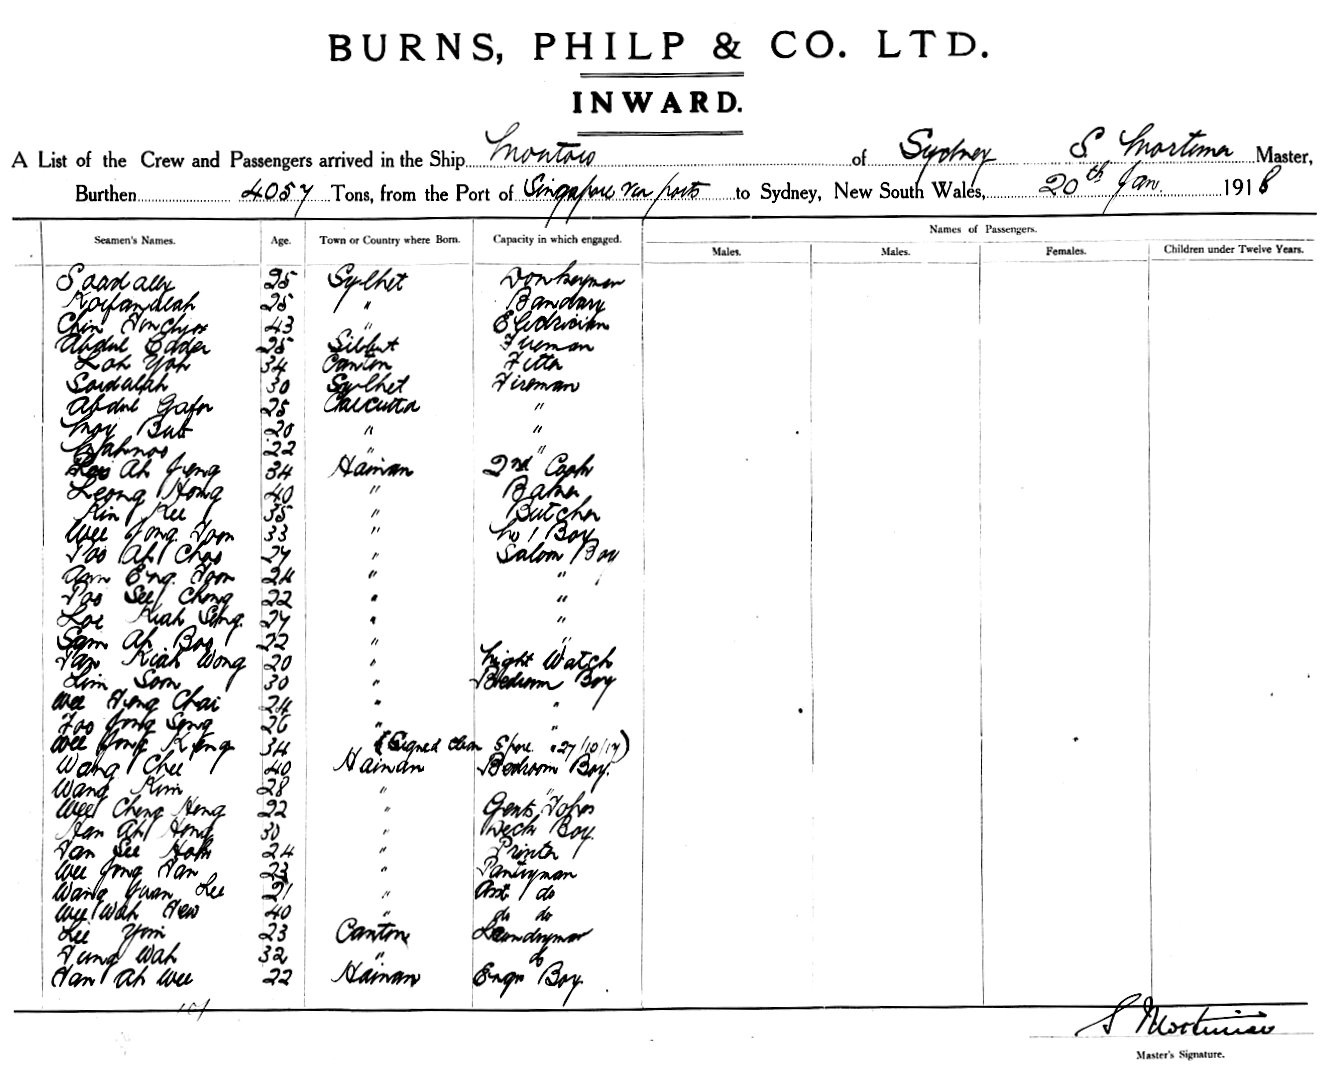 BURNS, PHILP & CO. LTD.
INWARD.
A List of the Crew and Passengers arrived in the Ship Montoro of Sydney S. Mortimer Master,
Burthen 4057 Tons, from the Port of Singapore via ports to Sydney, New South Wales, 20th Jan. 1918
Names of Passengers.
Seamen's Names. Age. Town or Country where Born. Capacity in which engaged. Males. Males. Females. Children under Twelve Years.
Saadally 25 Sylhet Donkeyman
25 " Bandary
Chin 43 " Electrician
Abdul 25 Fireman
Lah Yah 34 Canton Fitter
Saidalah 30 Sylhet Fireman
Abdul Gafor 25 Calcutta "
Moy But 20 " "
22 " "
Ah 34 Hainan 2nd Cook
Leong Hong 40 " Baker
Kin Kee 35 " Butcher
Wee Jong Toon 33 " No 1 Boy
Ah Choo 27 " Saloon Boy
Eng. Toon 24 " "
See Chong 22 " "
Loe Kiah Seng. 27 " "
Sam Ah Boo 22 " "
Tan Kiah Wong 20 " Night Watch
Lim Soon 30 " Bedroom Boy
Wee Heng Chai 24 " "
Foo Jong Seng 26 " "
Wee Jong Keng 34 (Signed clear S'pore. 27/10/17)
Wang Chee 40 Hainan Bedroom Boy.
Wang Kim 28 " "
Wee Cheng Heng 22 " Gents
Han Ah Hong 30 " Deck Boy.
Tan See 24 " Printer
Wee Jong Tan 23 " Pantryman
Wang Yuan Lee 21 " Asst do
Wee Wah Hew 40 " do do
Lee Yom 23 Canton Laundryman
Tung Wah 32 " do
Tan Ah Wee 22 Hainan Engr Boy.
101
S Mortimer
Master's Signature.